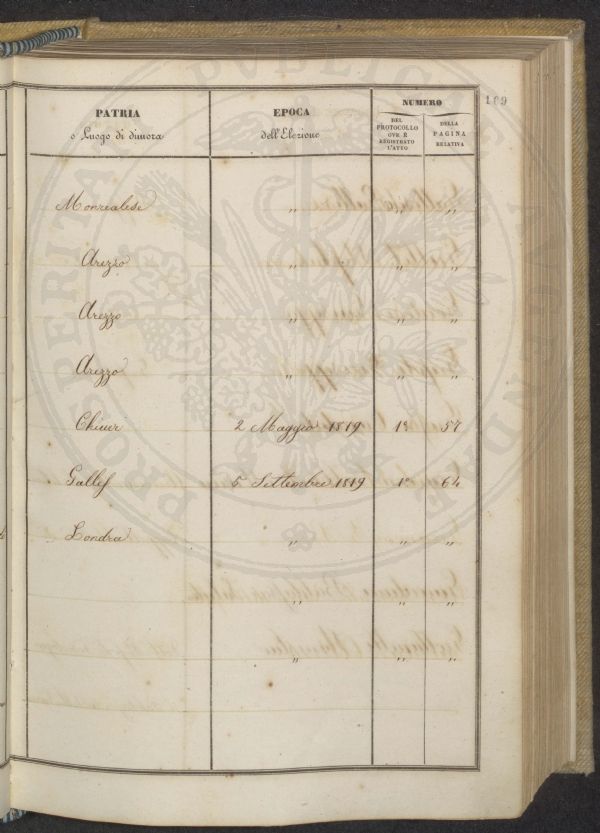 169
PATRIA
o Luogo di dimora
EPOCA
dell'Elezione
NUMERO
DEL PROTOCOLLO OVE È REGISTRATO L'ATTO
DELLA PAGINA RELATIVA
Monrealese " " "
Arezzo " " "
Arezzo " " "
Arezzo " " "
Chiusi 2 Maggio 1819 1º 57
5 Settembre 1819 1º 64
Londra " " "
" " "
" " "
PROSPERITA PUBLICA